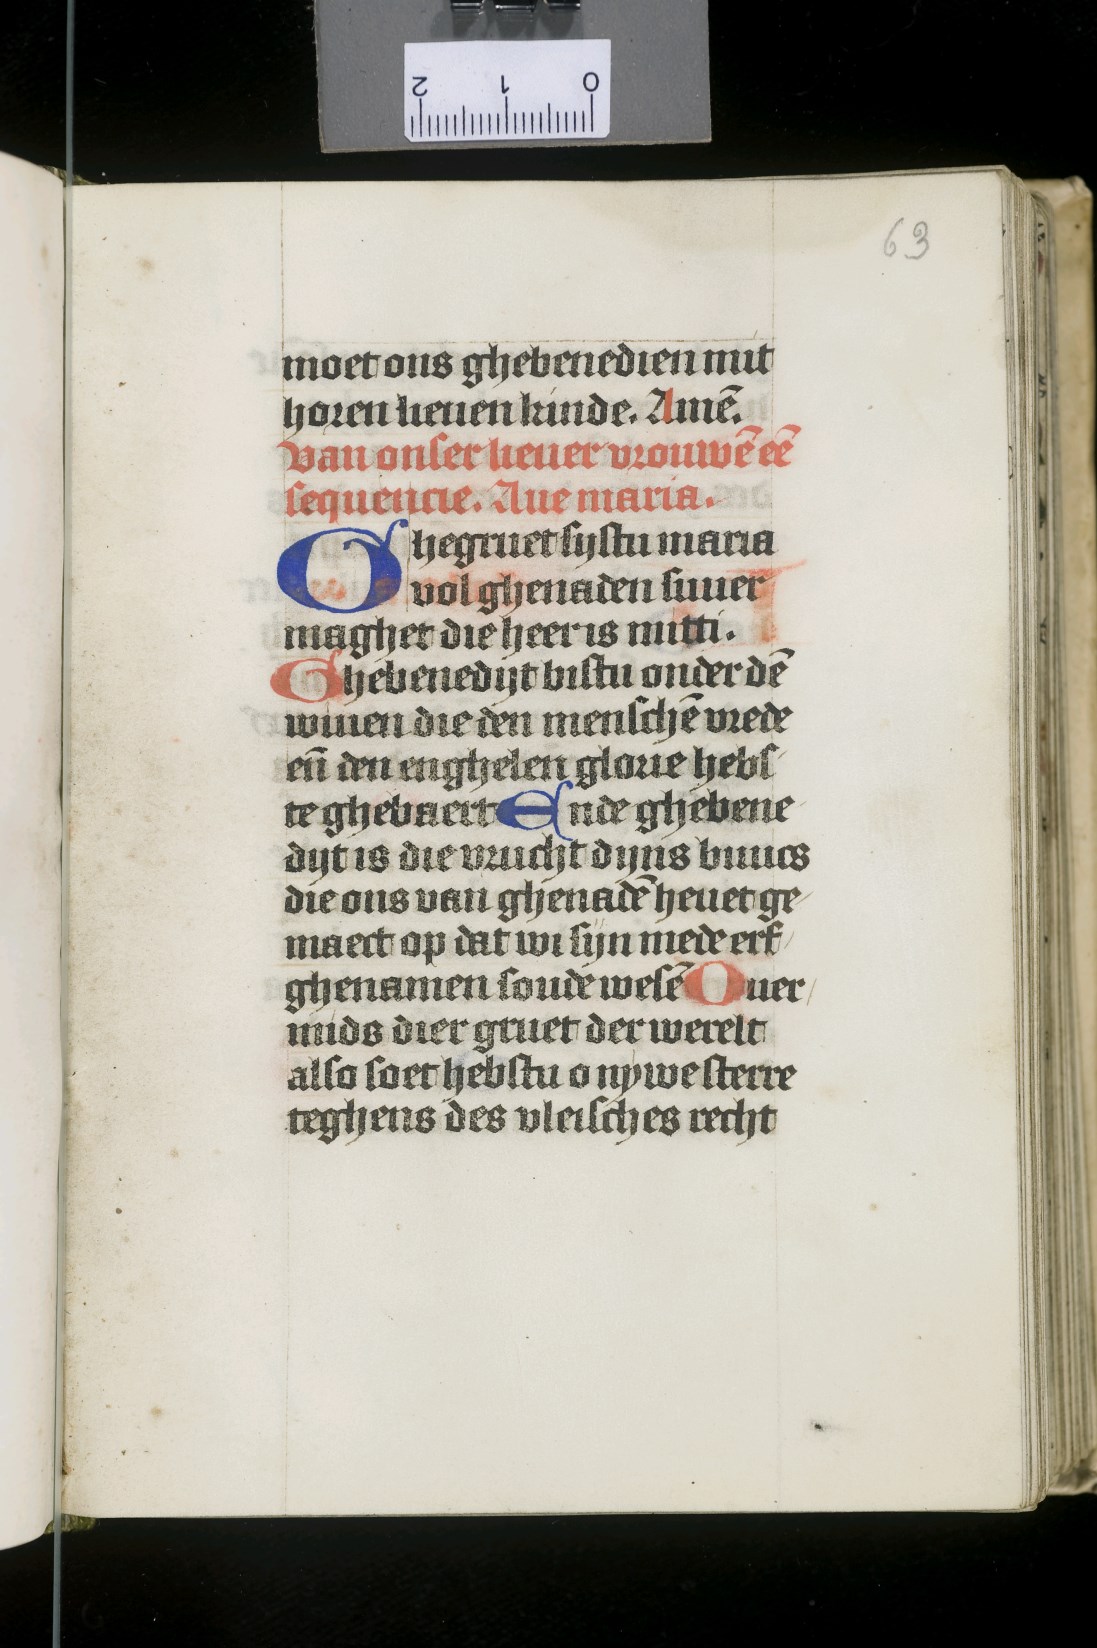 2 1 0
63
moet ons ghebenedien mit
horen lieuen kinde. Amē.
Van onser lieuer vrouwē eē
sequencie. Aue maria.
Ghegruet systu maria
vol ghenaden suuer
maghet die heer is mitti.
Ghebenedijt bistu onder dē
wiuen die den menschē vrede
eñ den enghelen glorie hebs
te ghebaert Ende ghebene
dijt is die vrucht dijns buucs
die ons van ghenadē heuet ge
maect op dat wi sijn mede erf
ghenamen soudē wesē Ouer
mids dier gruet der werelt
also soet hebstu o nywe sterre
teghens des vleisches recht